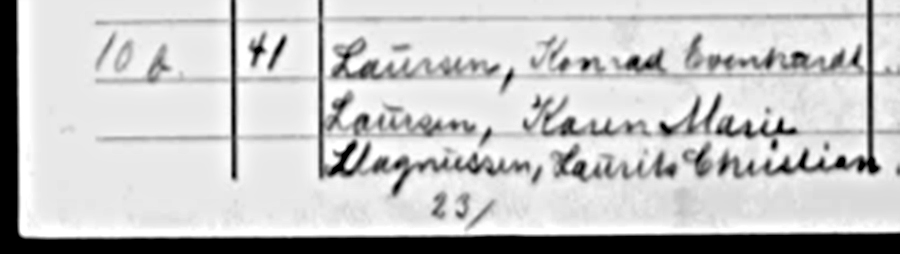 10 b. 41 Laursen, Konrad Evenhardt
Laursen, Karen Marie
Magnussen, Laurits Christian
23/